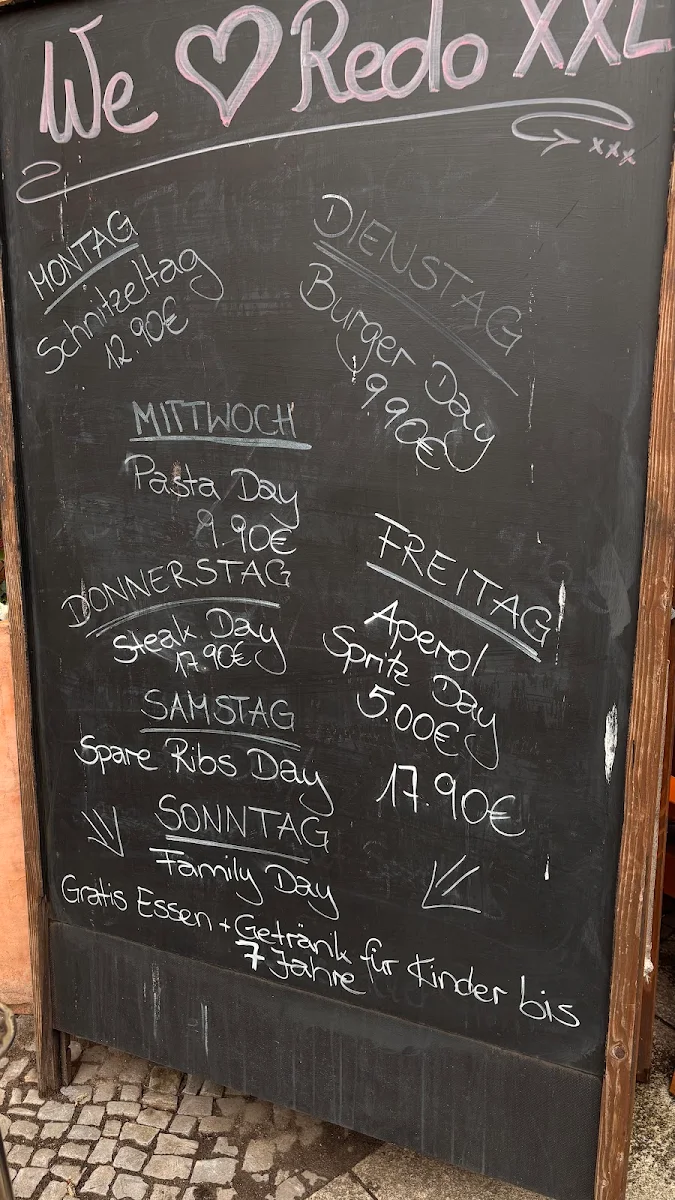 We ♡ Redo XXL
xxx
MONTAG
Schnitzeltag
12.90€
DIENSTAG
Burger Day
9.90€
MITTWOCH
Pasta Day
9.90€
DONNERSTAG
Steak Day
17.90€
FREITAG
Aperol
Spritz Day
5.00€
SAMSTAG
Spare Ribs Day
17.90€
SONNTAG
Family Day
Gratis Essen + Getränk für Kinder bis
7 Jahre